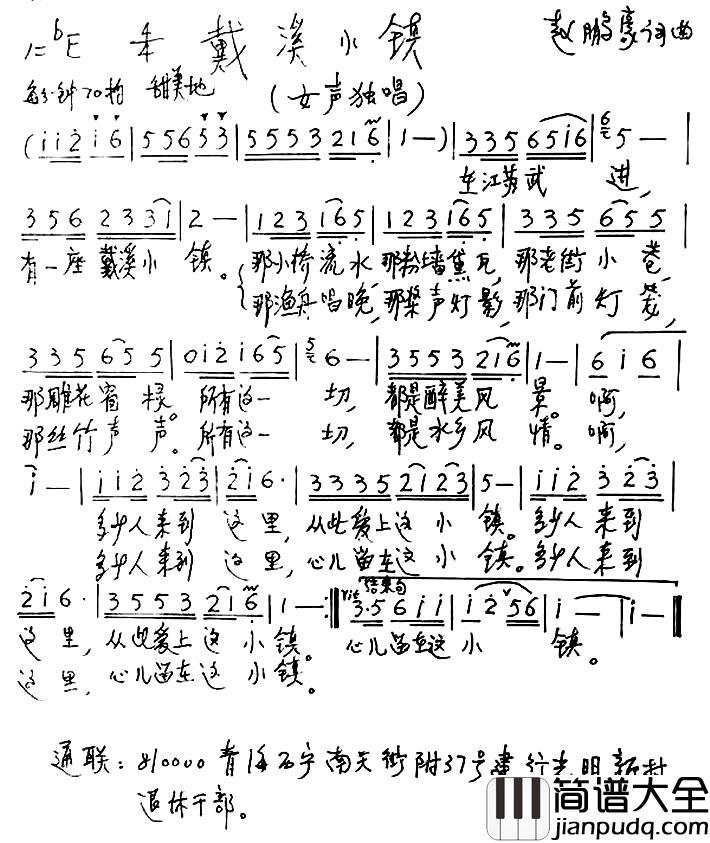 1=ᵇE 戴溪小镇 赵鹏豪词曲
每分钟70拍 甜美地 (女声独唱)
(i i 2 i 6 | 5 5 6 5 3 | 5 5 5 3 2 1 6 | 1 —) | 3 3 5 6 5 i 6 | 5 — |
在江苏武 进,
3 5 6 2 3 3 1 | 2 — | 1 2 3 1 6 5 | 1 2 3 1 6 5 | 3 3 5 6 5 5 |
有一座戴溪小 镇。 那小桥流水,那粉墙黛瓦,那老街小巷,
那渔舟唱晚,那桨声灯影,那门前灯笼,
3 3 5 6 5 5 | 0 i 2 i 6 5 | 6 — | 3 5 5 3 2 1 6 | 1 — | 6 i 6 |
那雕花窗棂。所有这一 切, 都是醉美风 景。 啊,
那丝竹声声。所有这一 切, 都是水乡风 情。 啊,
i — | i i 2 3 2 3 | 2 i 6 · | 3 3 3 5 2 1 2 3 | 5 — | i i 2 3 2 3 |
多少人来到 这里, 从此爱上这小 镇。多少人来到
多少人来到 这里, 心儿留在这小 镇。多少人来到
2 i 6 · | 3 5 5 3 2 1 6 | 1 — :‖ rit 结束句 3 · 5 6 i i | i 2 5 6 | i — | i — ‖
这里, 从此爱上这小镇。 心儿留在这小 镇。
这里, 心儿留在这小镇。
通联: 810000 青海西宁南大街附37号建行光明新村
退休干部。
简谱大全
jianpudq.com